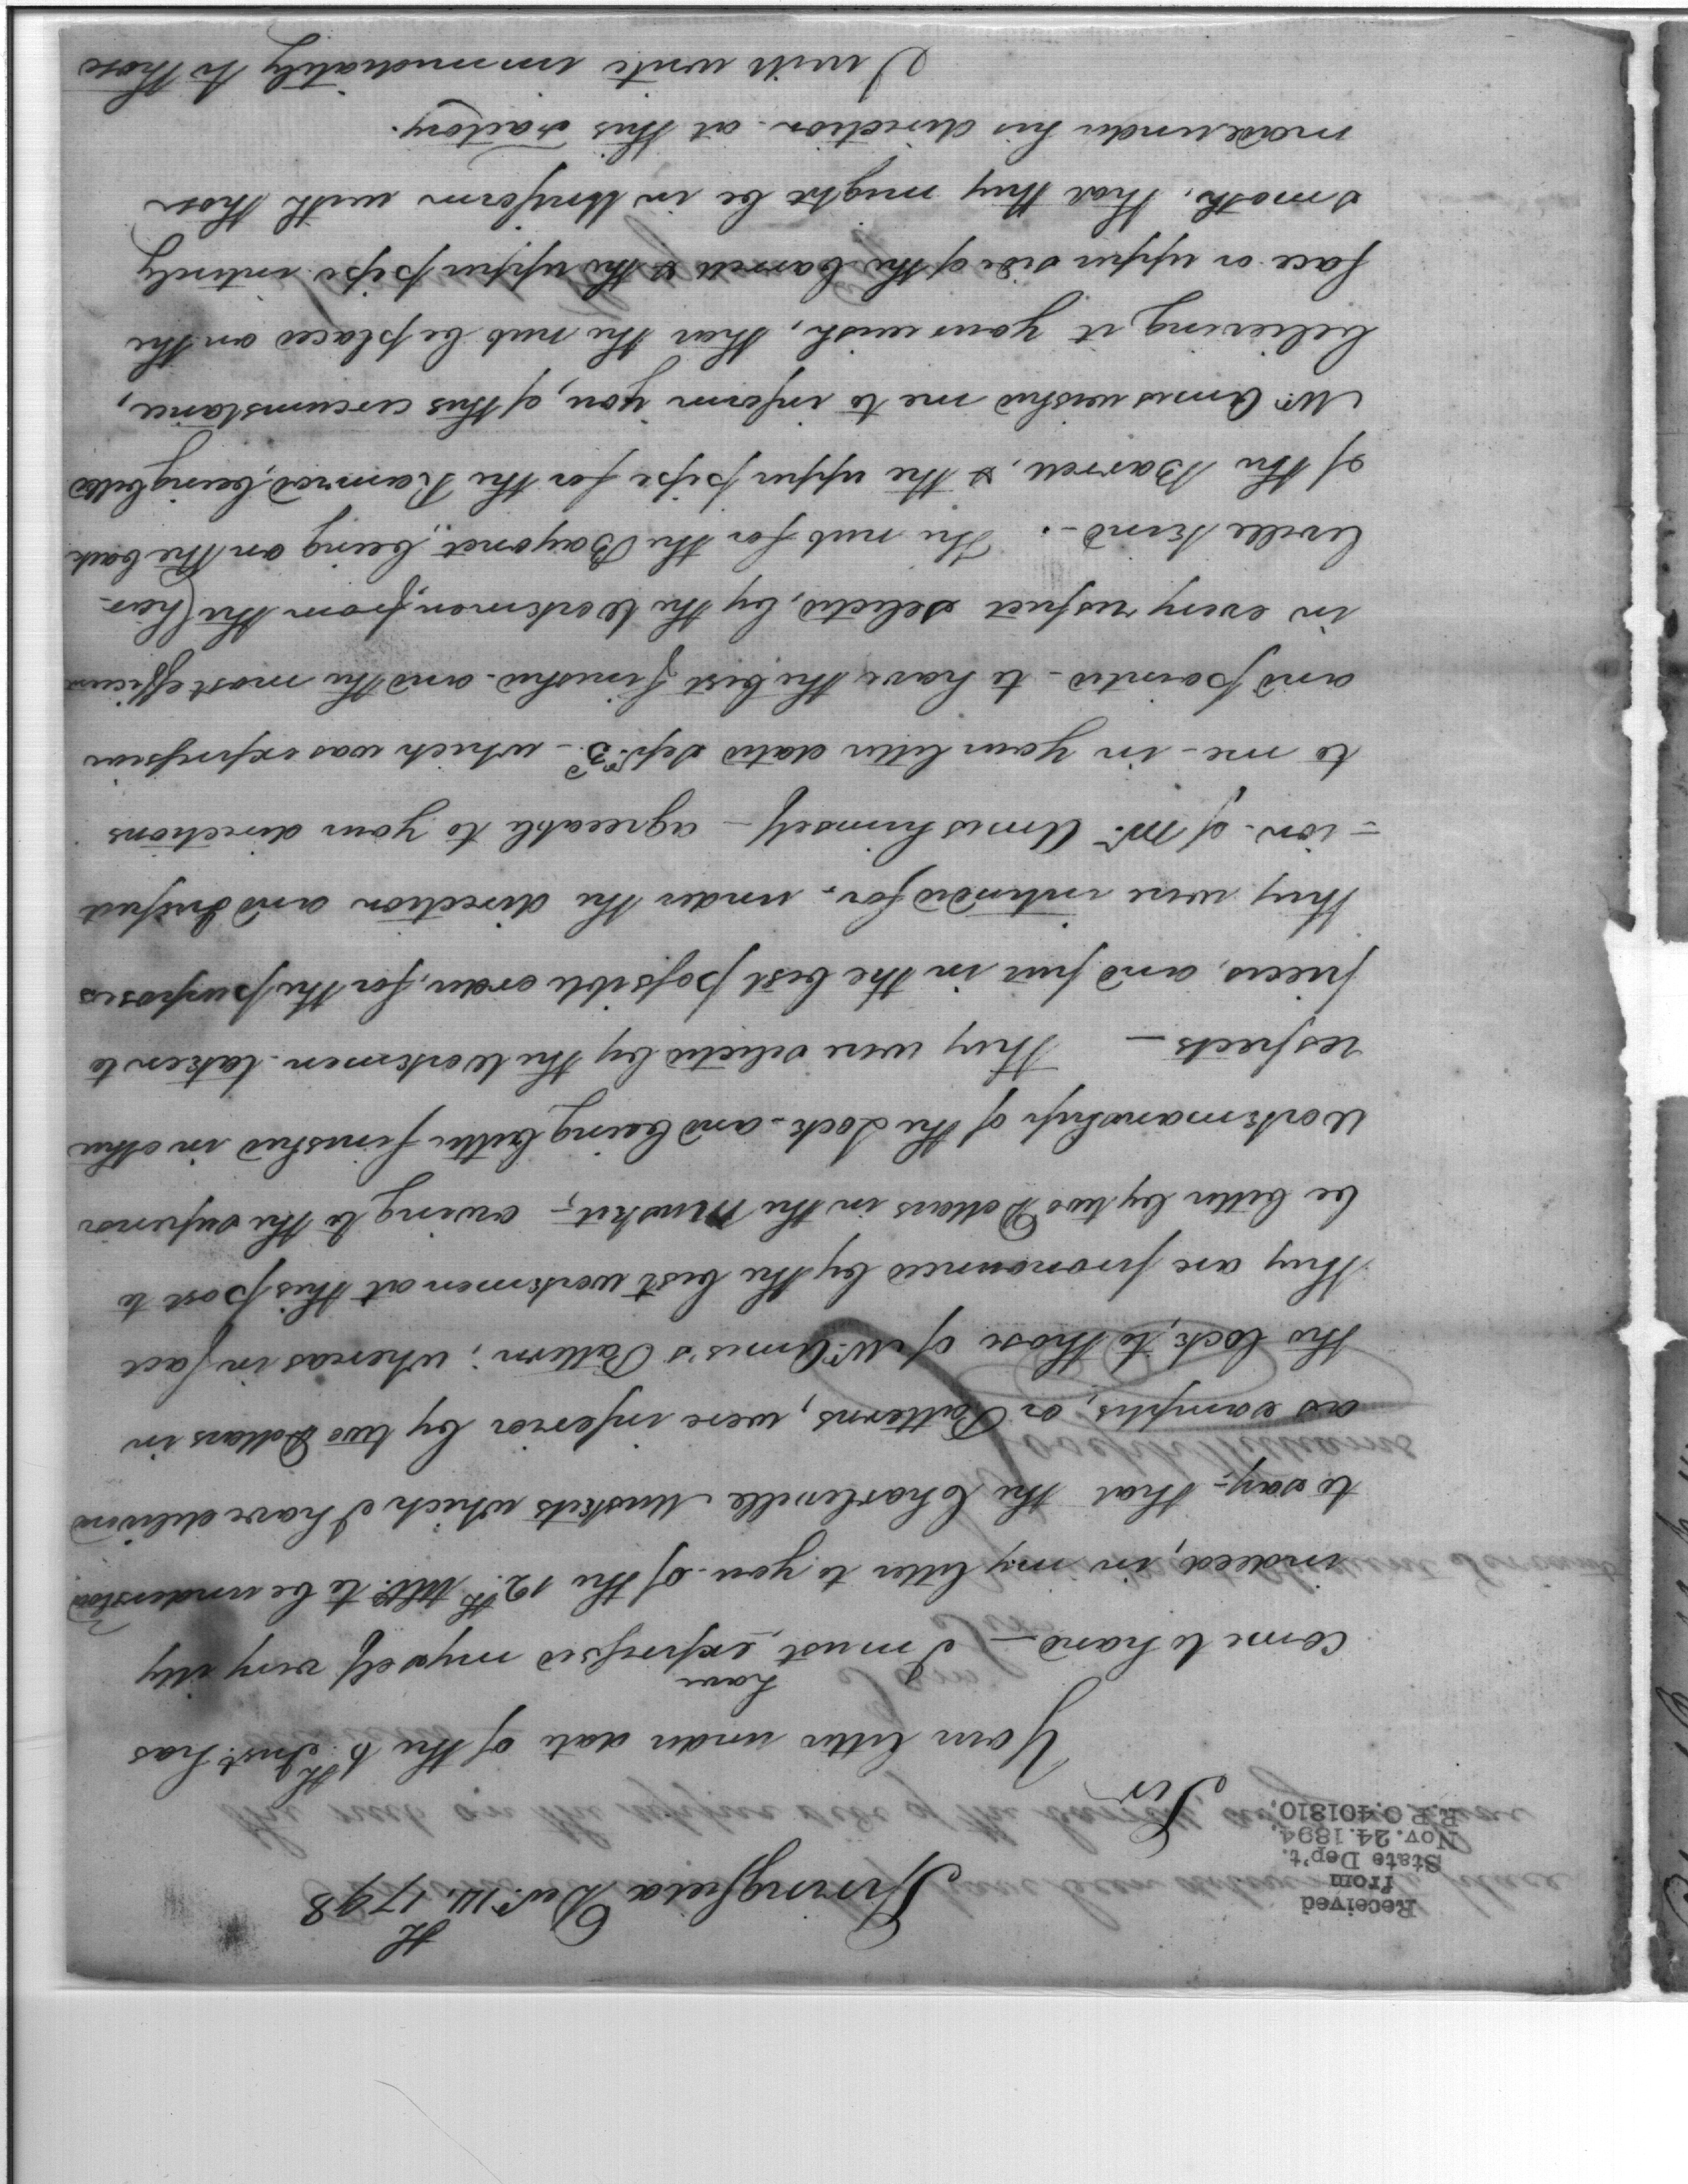 Received
from
State Dep't.
Nov. 24. 1894.
R.P. O. 401810.
Springfield Decr. 14th 1798
Sir
Your letter under date of the 6th Inst. has
come to hand — I must have expressed myself very illy
indeed, in my letter to you of the 12th Ulto. to be understood
to say — that the Charleville Muskets which I have delivered
as samples, or Patterns, were inferior by two Dollars in
the lock, to those of Mr. Ames's Pattern; whereas in fact
they are pronounced by the best workmen at this post to
be better by two Dollars in the Musket, — owing to the superior
Workmanship of the Lock — and being better finished in other
respects — They were selected by the Workmen — taken to
pieces, and put in the best possible order, for the purposes
they were intended for, — under the direction and Inspect
=ion — of Mr. Ames himself — agreeable to your directions
to me — in your letter dated Sepr. 3d — which was expressive
and pointed — to have the best finished — and the most efficient
in every respect selected, by the Workmen, from the Char-
leville kind —. The nub for the Bayonet, being on the back
of the Barrell, & the upper pipe for the Ramrod, being belled
Mr. Ames wished me to inform you, of this circumstance,
believing it your wish, that the nub be placed on the
face or upper side of the barrell & the upper pipe intirely
smooth, that they might be in Uniform with those
made under his direction at this Factory.
I will write immediately to those